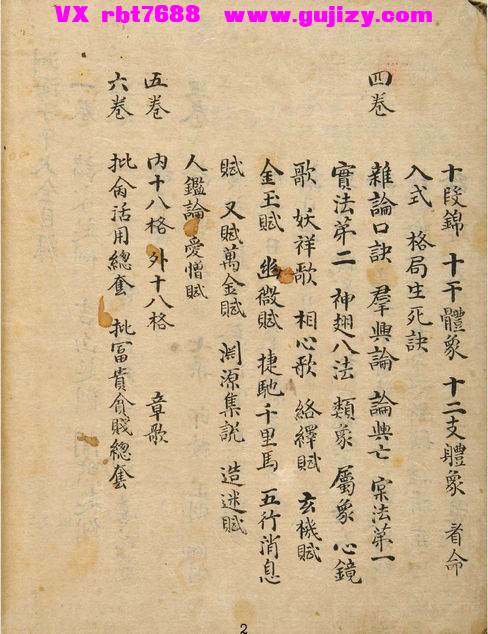 VX rbt7688 www.gujizy.com
十段錦 十干體象 十二支體象 看命
入式 格局生死訣
四卷 雜論口訣 羣興論 論興亡 宲法第一
實法第二 神趣八法 類象 屬象 心鏡
歌 妖祥歌 相心歌 絡繹賦 玄機賦
金玉賦 幽微賦 捷馳千里馬 五行消息
賦 又賦萬金賦 淵源集說 造迷賦
人鑑論 愛憎賦
五卷 內十八格 外十八格 章歌
六卷 批命活用總套 批冨貴貪賤總套
2